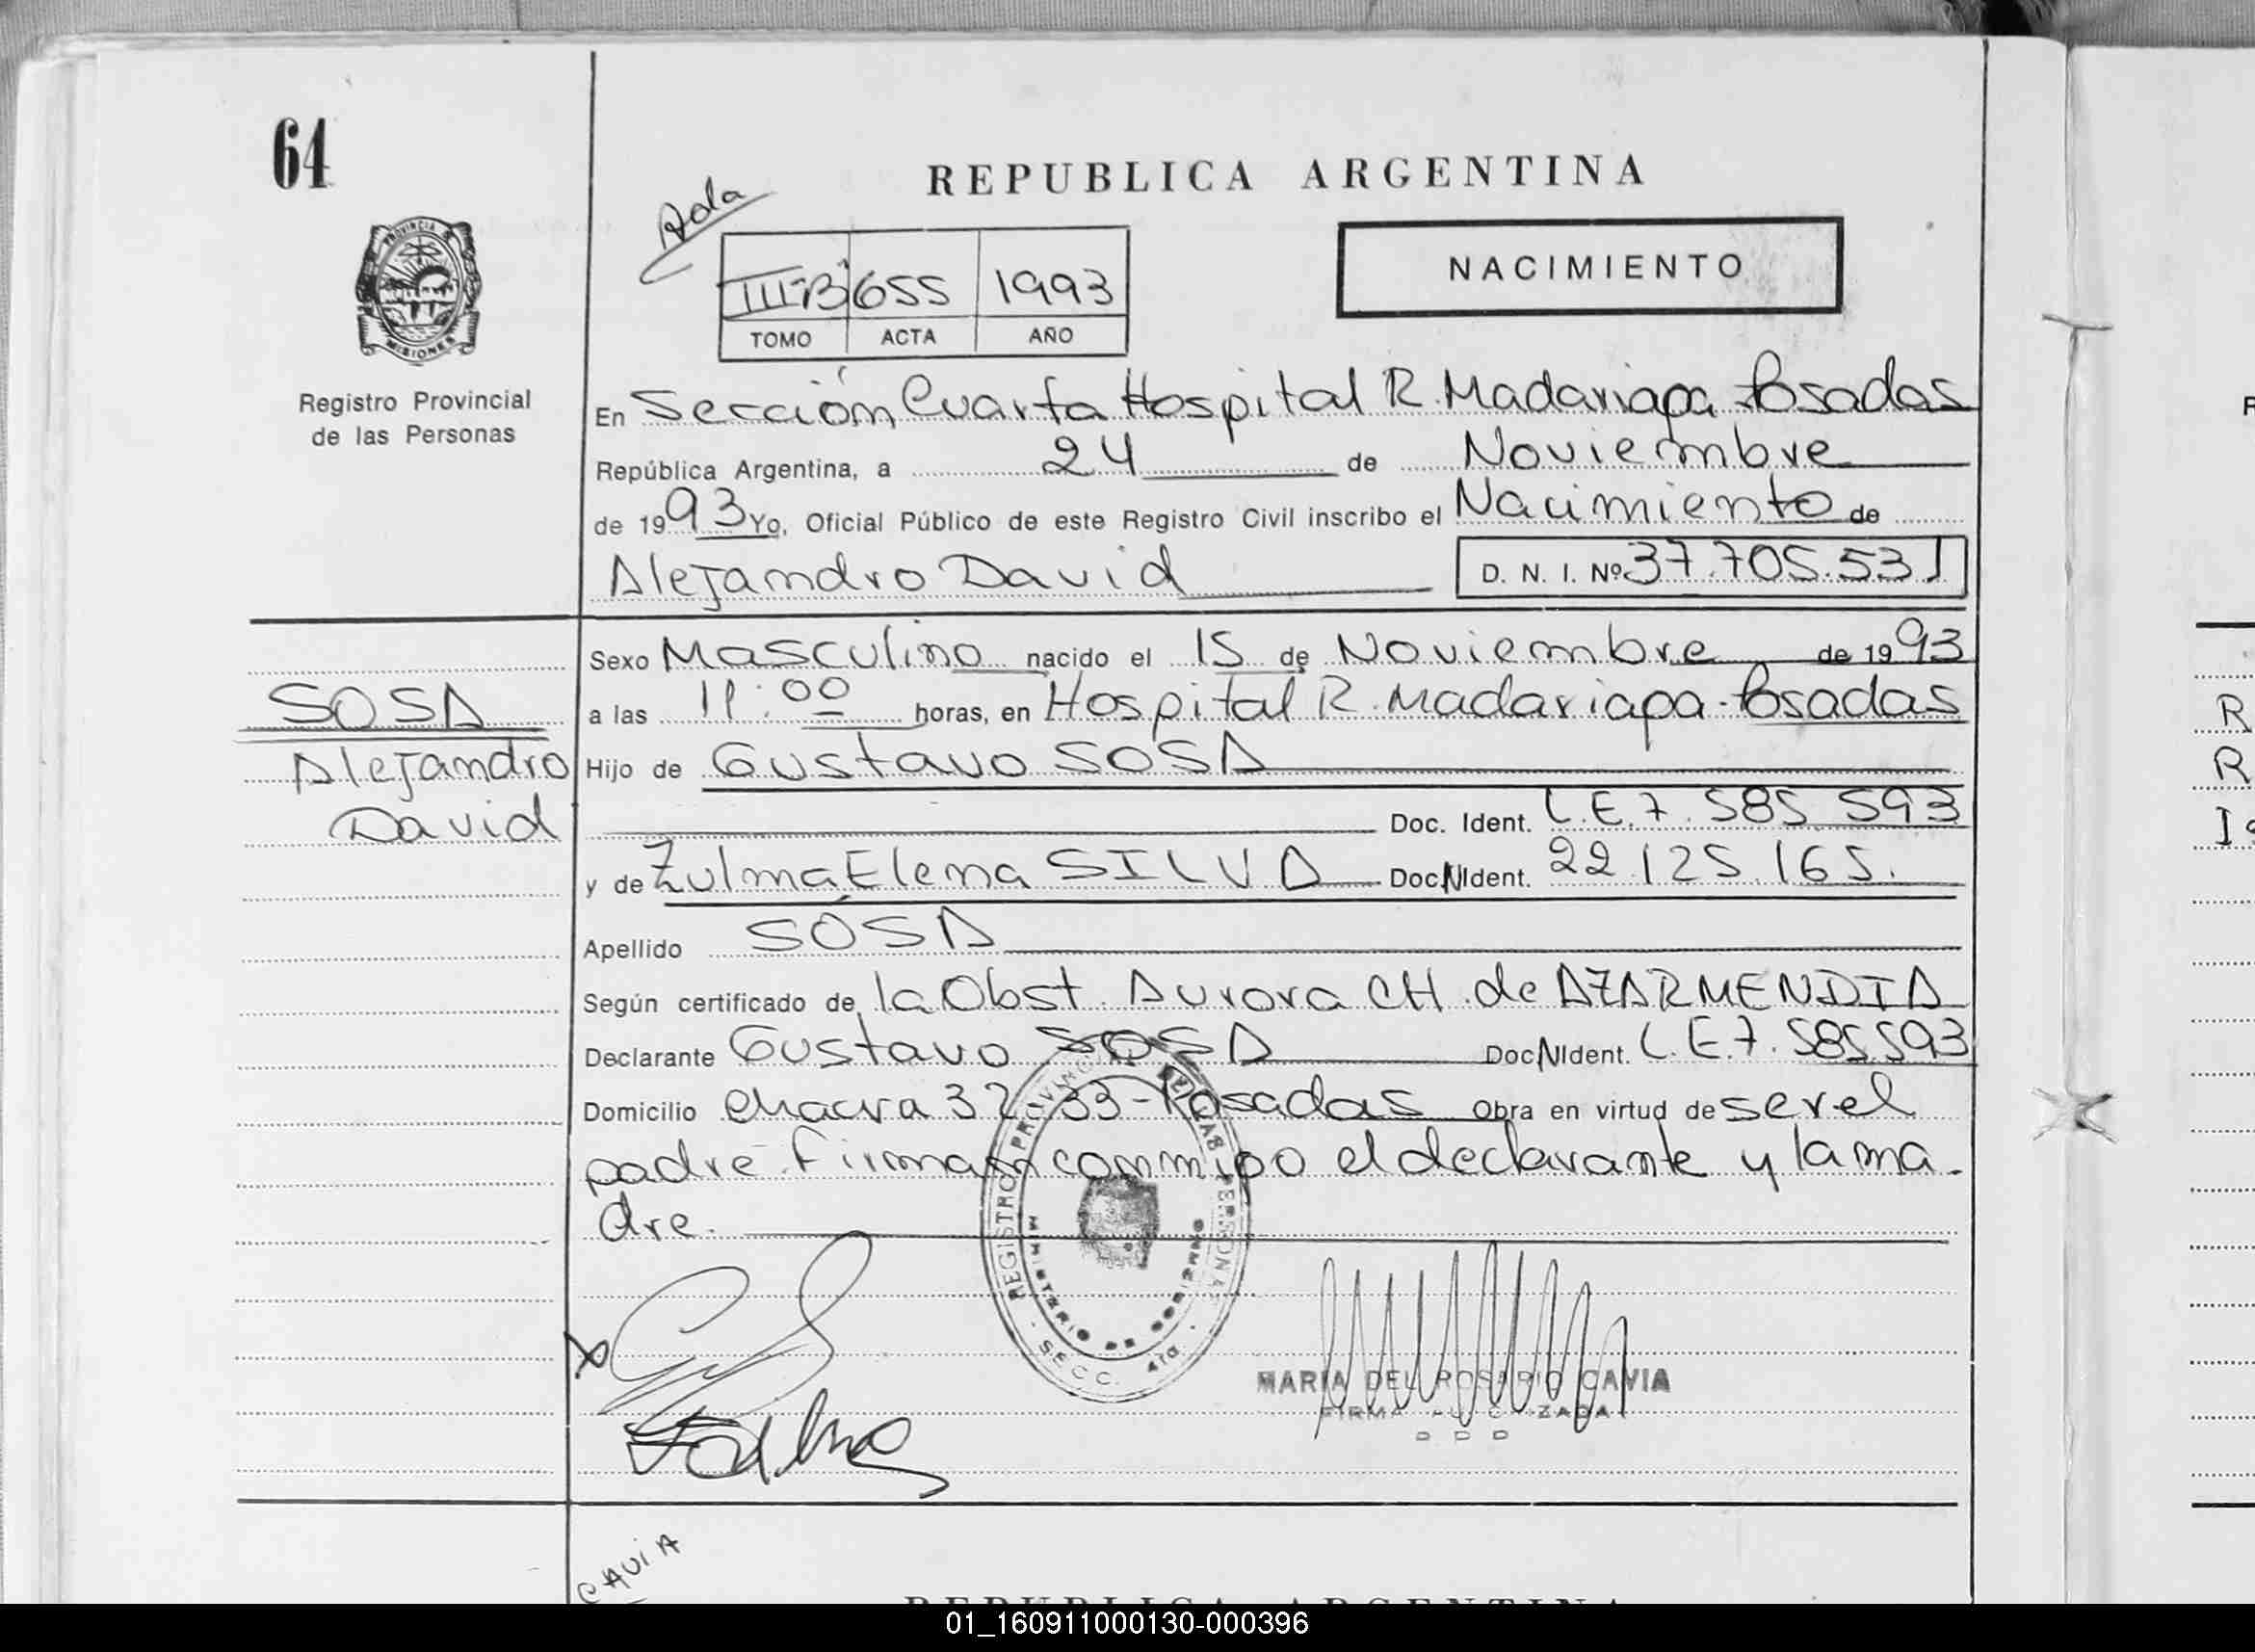 64
REPUBLICA ARGENTINA
Ada
PROVINCIA D
MISIONES
NACIMIENTO
III-B 655 1993
TOMO ACTA AÑO
Registro Provincial
de las Personas
En Sección Cuarta Hospital R. Madariaga - Posadas
República Argentina, a 24 de Noviembre
de 1993 Yo, Oficial Público de este Registro Civil inscribo el Nacimiento de
Alejandro David D. N. I. Nº 37.705.531
Sexo Masculino nacido el 15 de Noviembre de 1993
SOSA
a las 11:00 horas, en Hospital R. Madariaga - Posadas
Alejandro
Hijo de Gustavo SOSA
David
Doc. Ident. L.E. 7.585.593
y de Zulma Elena SILVA Doc.N Ident. 22.125.165.
Apellido SOSA
Según certificado de la Obst. Aurora CH. de AZARMENDIA
Declarante Gustavo SOSA Doc.N Ident. L.E. 7.585.593
Domicilio Chacra 32 33 - Posadas Obra en virtud de ser el
padre. Firman conmigo el declarante y la ma-
dre.
REGISTRO PROVINCIAL DE LAS PERSONAS
MINISTERIO DE GOBIERNO
SECC. 4ta
MARIA DEL ROSARIO CAVIA
FIRMA AUTORIZADA
CAVIA
REPUBLICA ARGENTINA
01_160911000130-000396